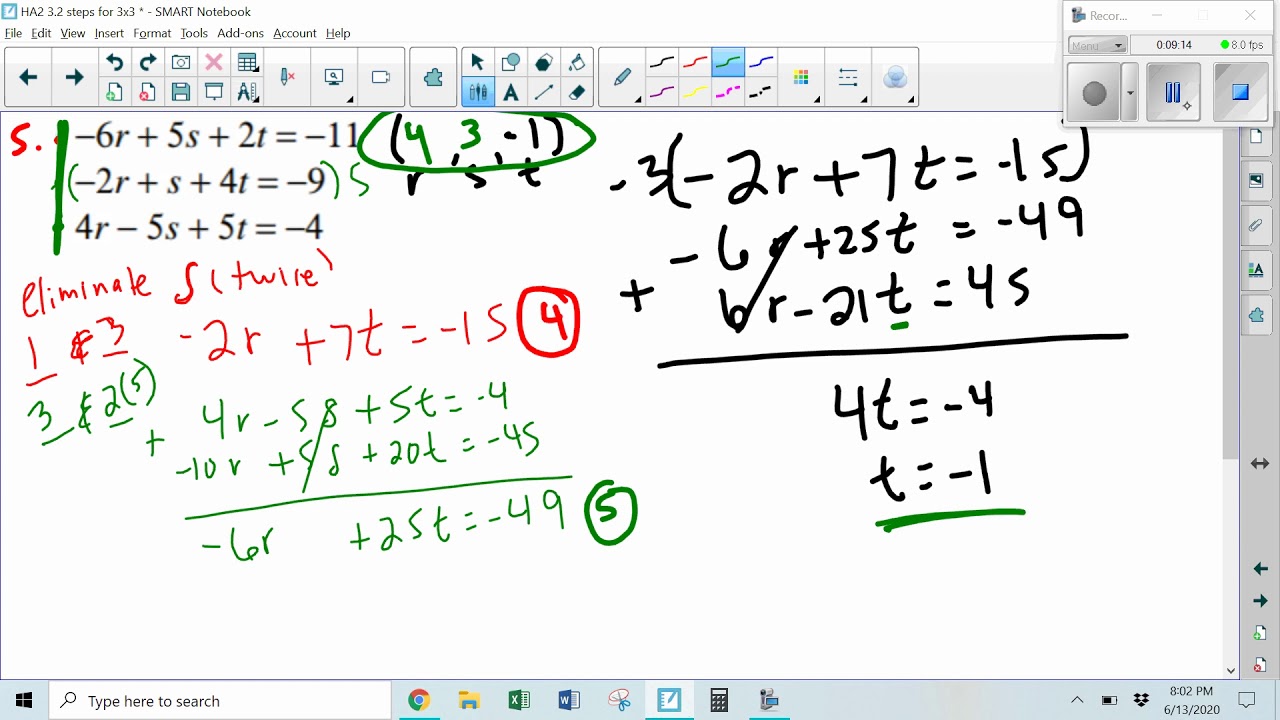 HA2 3.2 steps for 3x3 * - SMART Notebook
File Edit View Insert Format Tools Add-ons Account Help
Recor...
Menu 00:09:14 8.0 fps
5. −6r + 5s + 2t = −11 (4, 3, -1)
(−2r + s + 4t = −9)5 r s t
4r − 5s + 5t = −4
eliminate s (twice)
1 & 3 -2r +7t = -15 4
3 & 2(5)
4r - 5s + 5t = -4
+ -10r + 5s + 20t = -45
-6r +25t = -49 5
-3(-2r + 7t = -15)
-6r +25t = -49
+ 6r - 21t = 45
4t = -4
t = -1
Type here to search
8:02 PM
6/13/2020